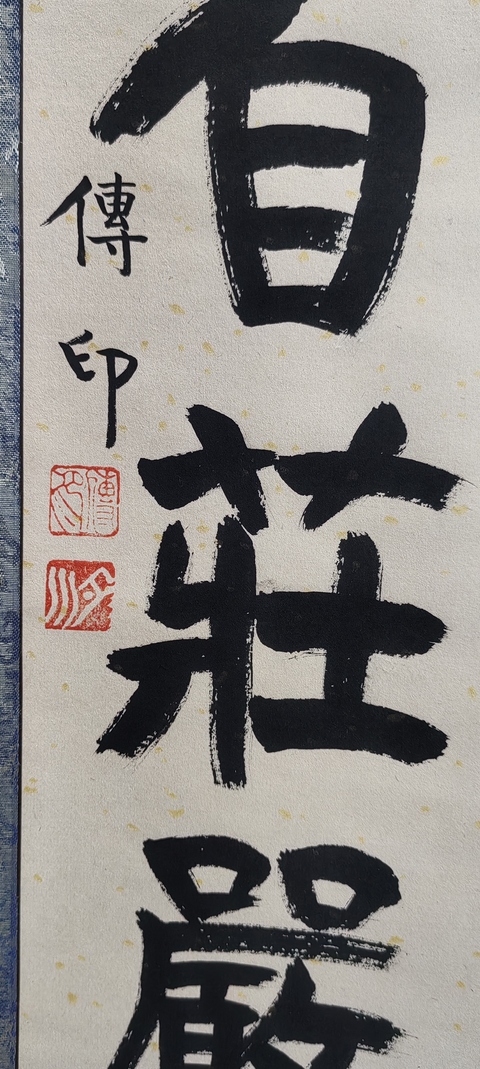 自莊嚴
傳印